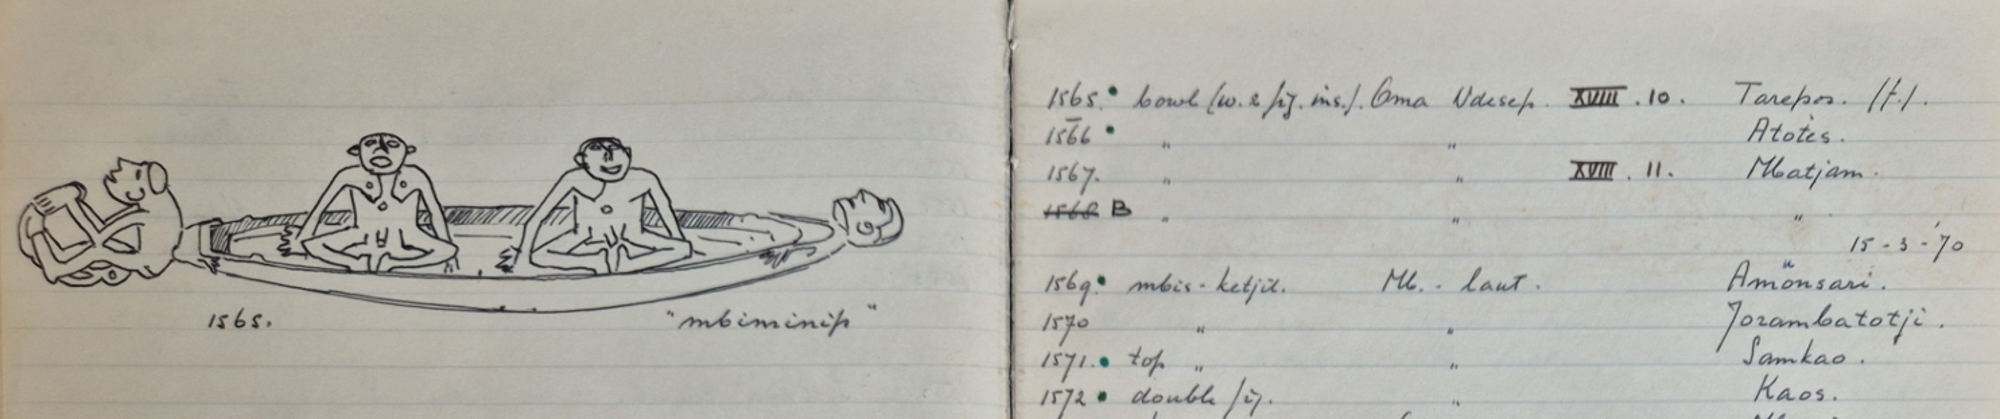 1565. "mbiminip"
1565. bowl (w. 2 fig. ins.). Oma Ndesep. XVIII . 10 . Tarepos. (f).
1566 " " Atotes.
1567. " " XVIII . 11 . Mbatjam.
1568 B " " "
15 - 3 - '70
1569. mbis - ketjil. Mb. - laut. Amönsari.
1570 " " Jorambatotji.
1571. top " " Samkao.
1572 double fig. " Kaos.